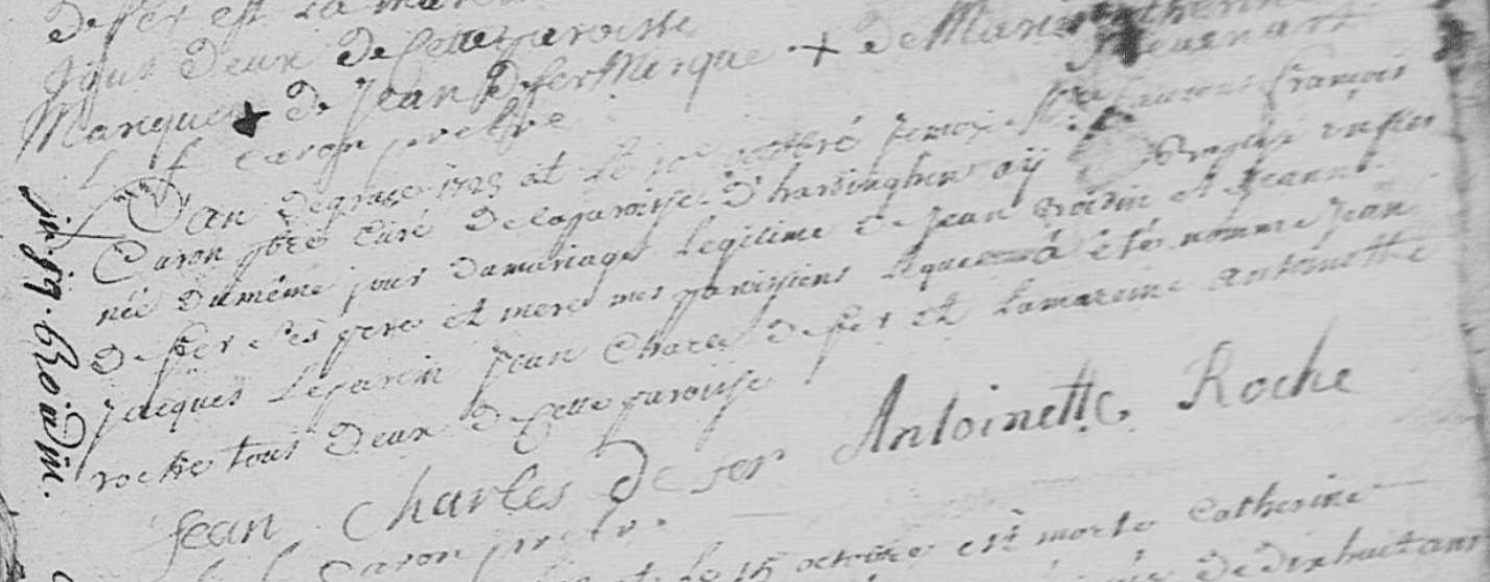 Defer est La mar
tous Deux De Cette paroisse
Marque + de Jean Defer Merque + de Marie Catherine
L f Caron prestre
L'an de grace 1725 et le octobre Je Laurens françois
Caron pbre Curé De la paroisse d'hardinghen ay Baptisé un fils
née du même jour du mariage Legitime de Jean Boidin et Jeanne
Defer Ses pere et mere mes paroissiens Lequel a été nommé Jean
Jacques Le parein Jean Charle defer et La mareine antoinette
roche tous Deux De Cette paroisse
Jean Charles Defer Antoinette Roche
Caron pretre
le 15 octobre est morte Catherine
de dixhuit ans
j. jq. Boidin.